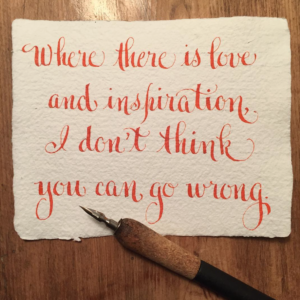 Where there is love
and inspiration,
I don't think
you can go wrong.